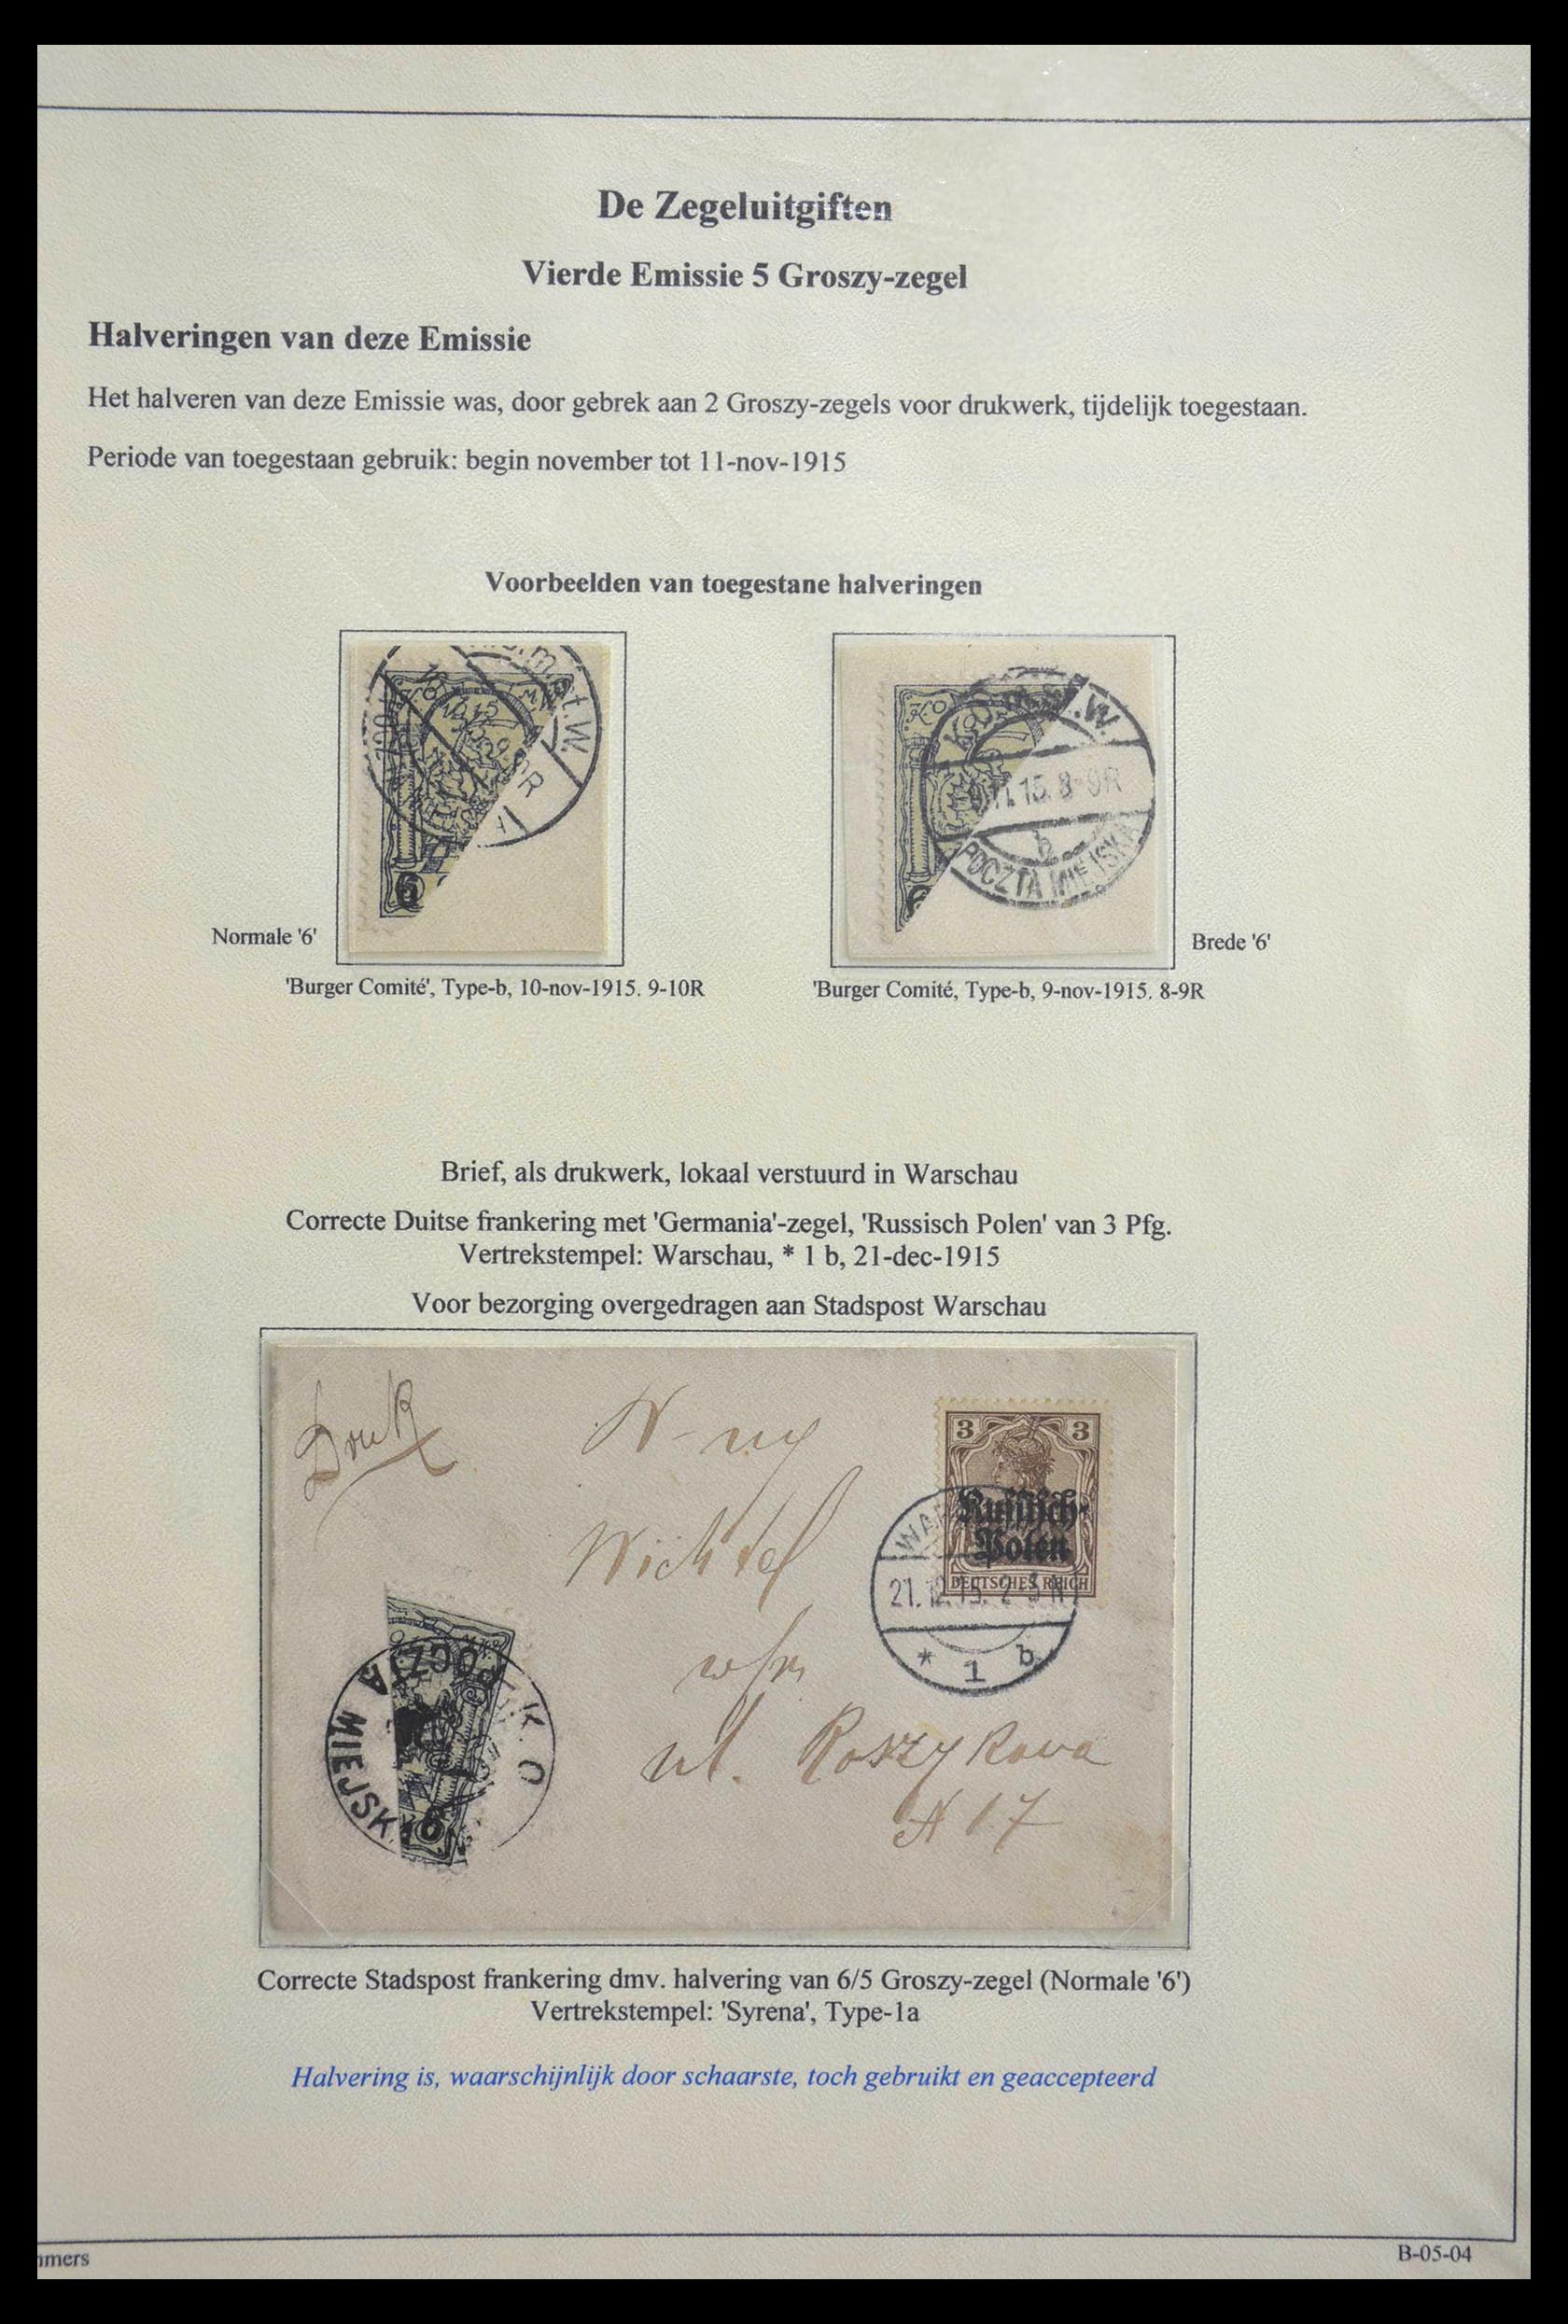 De Zegeluitgiften
Vierde Emissie 5 Groszy-zegel
Halveringen van deze Emissie
Het halveren van deze Emissie was, door gebrek aan 2 Groszy-zegels voor drukwerk, tijdelijk toegestaan.
Periode van toegestaan gebruik: begin november tot 11-nov-1915
Voorbeelden van toegestane halveringen
6
.W.
11.15. 8-9R
b
POCZTA MIEJSK
Normale '6'
Brede '6'
'Burger Comité', Type-b, 10-nov-1915. 9-10R
'Burger Comité, Type-b, 9-nov-1915. 8-9R
Brief, als drukwerk, lokaal verstuurd in Warschau
Correcte Duitse frankering met 'Germania'-zegel, 'Russisch Polen' van 3 Pfg.
Vertrekstempel: Warschau, * 1 b, 21-dec-1915
Voor bezorging overgedragen aan Stadspost Warschau
Druk
3 3
Russisch-
Polen
DEUTSCHES REICH
21.12.15.
* 1 b
POCZTA MIEJSK
K.O
6
ul. Koszykowa
N 17
Correcte Stadspost frankering dmv. halvering van 6/5 Groszy-zegel (Normale '6')
Vertrekstempel: 'Syrena', Type-1a
Halvering is, waarschijnlijk door schaarste, toch gebruikt en geaccepteerd
mmers
B-05-04